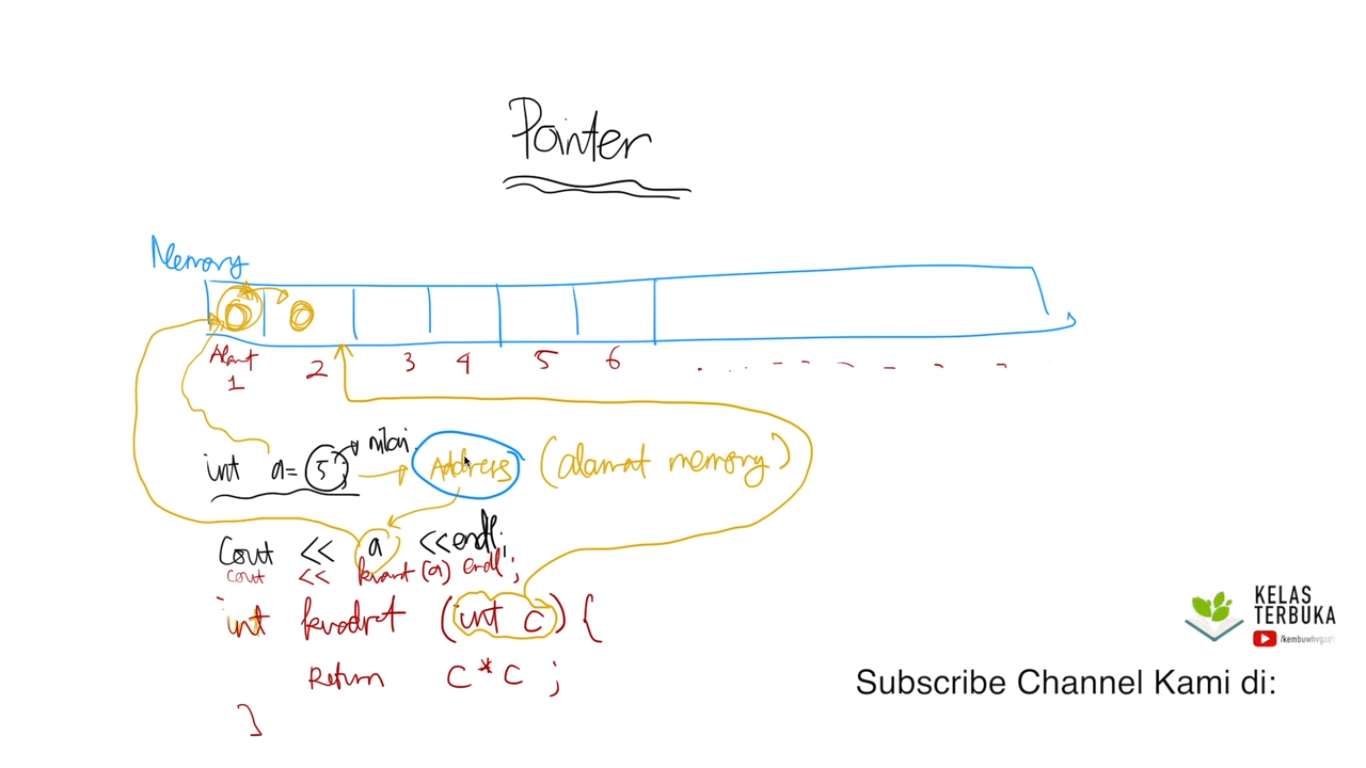 Pointer
Memory
Alamt
1 2 3 4 5 6 . . . - - - - - -
int a = 5; nilai Address (alamat memory)
Cout << a << endl;
cout << kuart (a) endl;
int kvadrat (int c) {
Return C * C ;
}
KELAS
TERBUKA
Subscribe Channel Kami di: